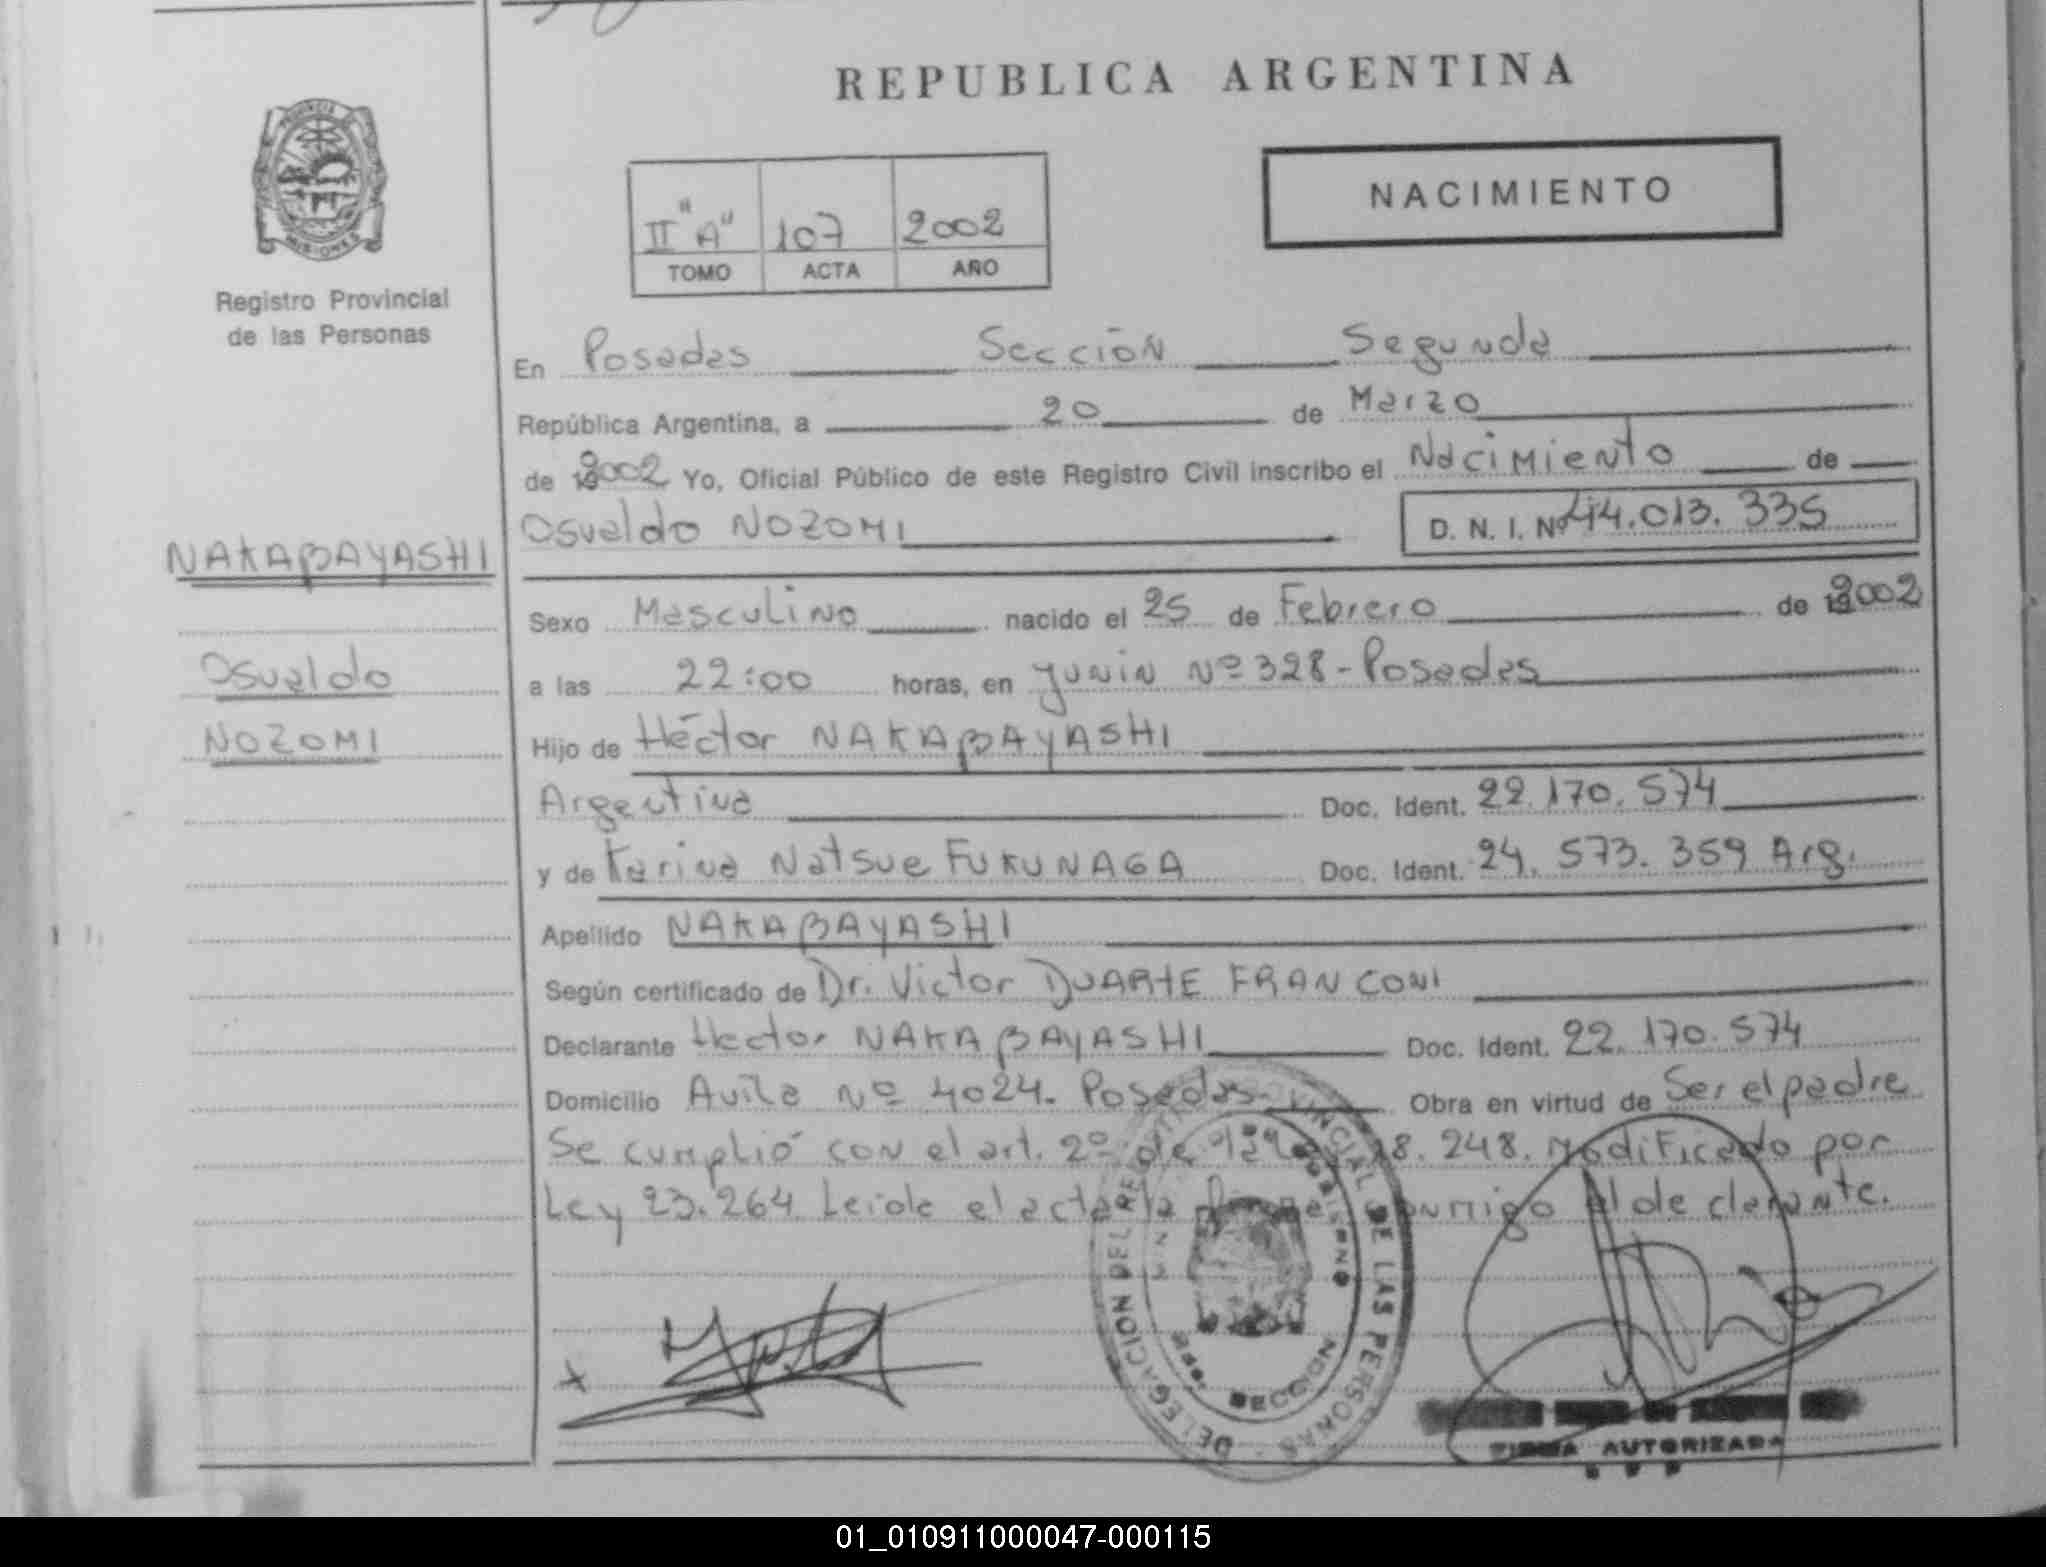 REPUBLICA ARGENTINA
PROVINCIA DE
MISIONES
Registro Provincial
de las Personas
NACIMIENTO
II "A" 107 2002
TOMO ACTA AÑO
En Posadas Sección Segunda
República Argentina, a 20 de Marzo
de 2002 Yo, Oficial Público de este Registro Civil inscribo el Nacimiento de
Osvaldo NOZOMI D. N. I. Nº 44.013.335
NAKABAYASHI
Osvaldo
NOZOMI
Sexo Masculino nacido el 25 de Febrero de 2002
a las 22:00 horas, en Junin Nº 328-Posadas
Hijo de Héctor NAKABAYASHI
Argentina Doc. Ident. 22.170.574
y de Karina Natsue FUKUNAGA Doc. Ident. 24.573.359 Arg.
Apellido NAKABAYASHI
Según certificado de Dr. Victor DUARTE FRANCONI
Declarante Hector NAKABAYASHI Doc. Ident. 22.170.574
Domicilio Avila Nº 4024. Posadas Obra en virtud de Ser el padre
Se cumplió con el art. 2º de la Ley 18.248. Modificado por
Ley 23.264 Leida el acta la firma conmigo el declarante.
DELEGACION DEL REGISTRO PROVINCIAL DE LAS PERSONAS
SECCION
FIRMA AUTORIZADA
01_010911000047-000115